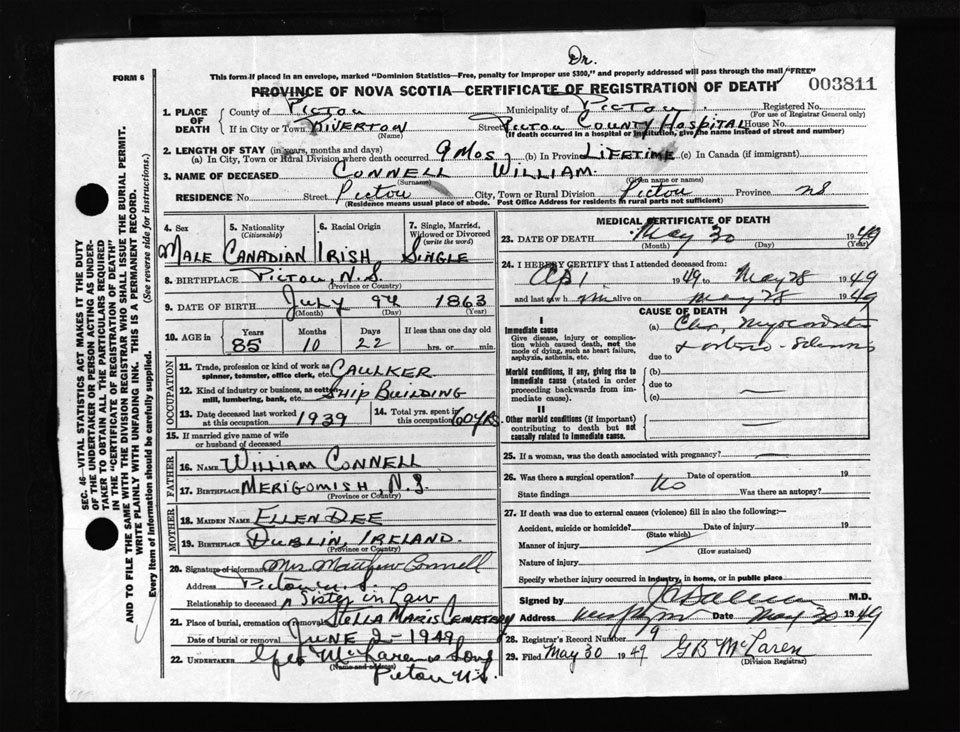 Dr.
FORM 6
This form if placed in an envelope, marked "Dominion Statistics—Free, penalty for improper use $300," and properly addressed will pass through the mail "FREE"
PROVINCE OF NOVA SCOTIA—CERTIFICATE OF REGISTRATION OF DEATH
003811
1. PLACE OF DEATH
County of Pictou Municipality of Pictou Registered No.
(For use of Registrar General only)
If in City or Town RIVERTON Street PICTOU COUNTY HOSPITAL House No.
(Name) (If death occurred in a hospital or institution, give the name instead of street and number)
2. LENGTH OF STAY (in years, months and days)
(a) In City, Town or Rural Division where death occurred 9 MOS (b) In Province LIFETIME (c) In Canada (if immigrant)
3. NAME OF DECEASED CONNELL WILLIAM
(Surname) (Given name or names)
RESIDENCE No. Street Pictou City, Town or Rural Division Pictou Province NS
(Residence means usual place of abode. Post Office Address for residents in rural parts not sufficient)
SEC. 46—VITAL STATISTICS ACT MAKES IT THE DUTY
OF THE UNDERTAKER OR PERSON ACTING AS UNDER-
TAKER TO OBTAIN ALL THE PARTICULARS REQUIRED
IN THE "CERTIFICATE OF REGISTRATION OF DEATH"
AND TO FILE THE SAME WITH THE DIVISION REGISTRAR WHO SHALL ISSUE THE BURIAL PERMIT.
WRITE PLAINLY WITH UNFADING INK. THIS IS A PERMANENT RECORD.
Every item of information should be carefully supplied. (See reverse side for instructions.)
4. Sex 5. Nationality (Citizenship) 6. Racial Origin 7. Single, Married, Widowed or Divorced (write the word)
MALE CANADIAN IRISH SINGLE
8. BIRTHPLACE Pictou, N.S.
(Province or Country)
9. DATE OF BIRTH July 9th 1863
(Month) (Day) (Year)
10. AGE in Years Months Days If less than one day old
85 10 22 hrs. or min.
OCCUPATION
11. Trade, profession or kind of work as spinner, teamster, office clerk, etc. CAULKER
12. Kind of industry or business, as cotton mill, lumbering, bank, etc. SHIP BUILDING
13. Date deceased last worked at this occupation 1939 14. Total yrs. spent in this occupation 60 YRS
15. If married give name of wife or husband of deceased
FATHER
16. NAME WILLIAM CONNELL
17. BIRTHPLACE MERIGOMISH, N.S.
(Province or Country)
MOTHER
18. MAIDEN NAME ELLEN DEE
19. BIRTHPLACE DUBLIN, IRELAND.
(Province or Country)
20. Signature of informant Mrs. Matthew Connell
Address Pictou N.S.
Relationship to deceased Sister in Law
21. Place of burial, cremation or removal STELLA MARIS CEMETERY
Date of burial or removal JUNE 2 - 1949
22. UNDERTAKER Geo McLaren & Sons
(Name and address)
Pictou N.S.
MEDICAL CERTIFICATE OF DEATH
23. DATE OF DEATH May 30 1949
(Month) (Day) (Year)
24. I HEREBY CERTIFY that I attended deceased from:
Apl 1 1949 to May 28 1949
and last saw him alive on May 28 1949
CAUSE OF DEATH
I
Immediate cause
Give disease, injury or complication which caused death, not the mode of dying, such as heart failure, asphyxia, asthenia, etc.
(a) Chr. Myocarditis
due to
Morbid conditions, if any, giving rise to immediate cause (stated in order proceeding backwards from immediate cause).
(b)
due to
(c)
II
Other morbid conditions (if important) contributing to death but not causally related to immediate cause.
25. If a woman, was the death associated with pregnancy? —
26. Was there a surgical operation? No Date of operation 19
State findings Was there an autopsy?
27. If death was due to external causes (violence) fill in also the following:—
Accident, suicide or homicide? Date of injury 19
(State which)
Manner of injury
(How sustained)
Nature of injury
Specify whether injury occurred in industry, in home, or in public place
Signed by M.D.
Address Date May 30 1949
28. Registrar's Record Number 19
29. Filed May 30 1949 GB McLaren
(Division Registrar)